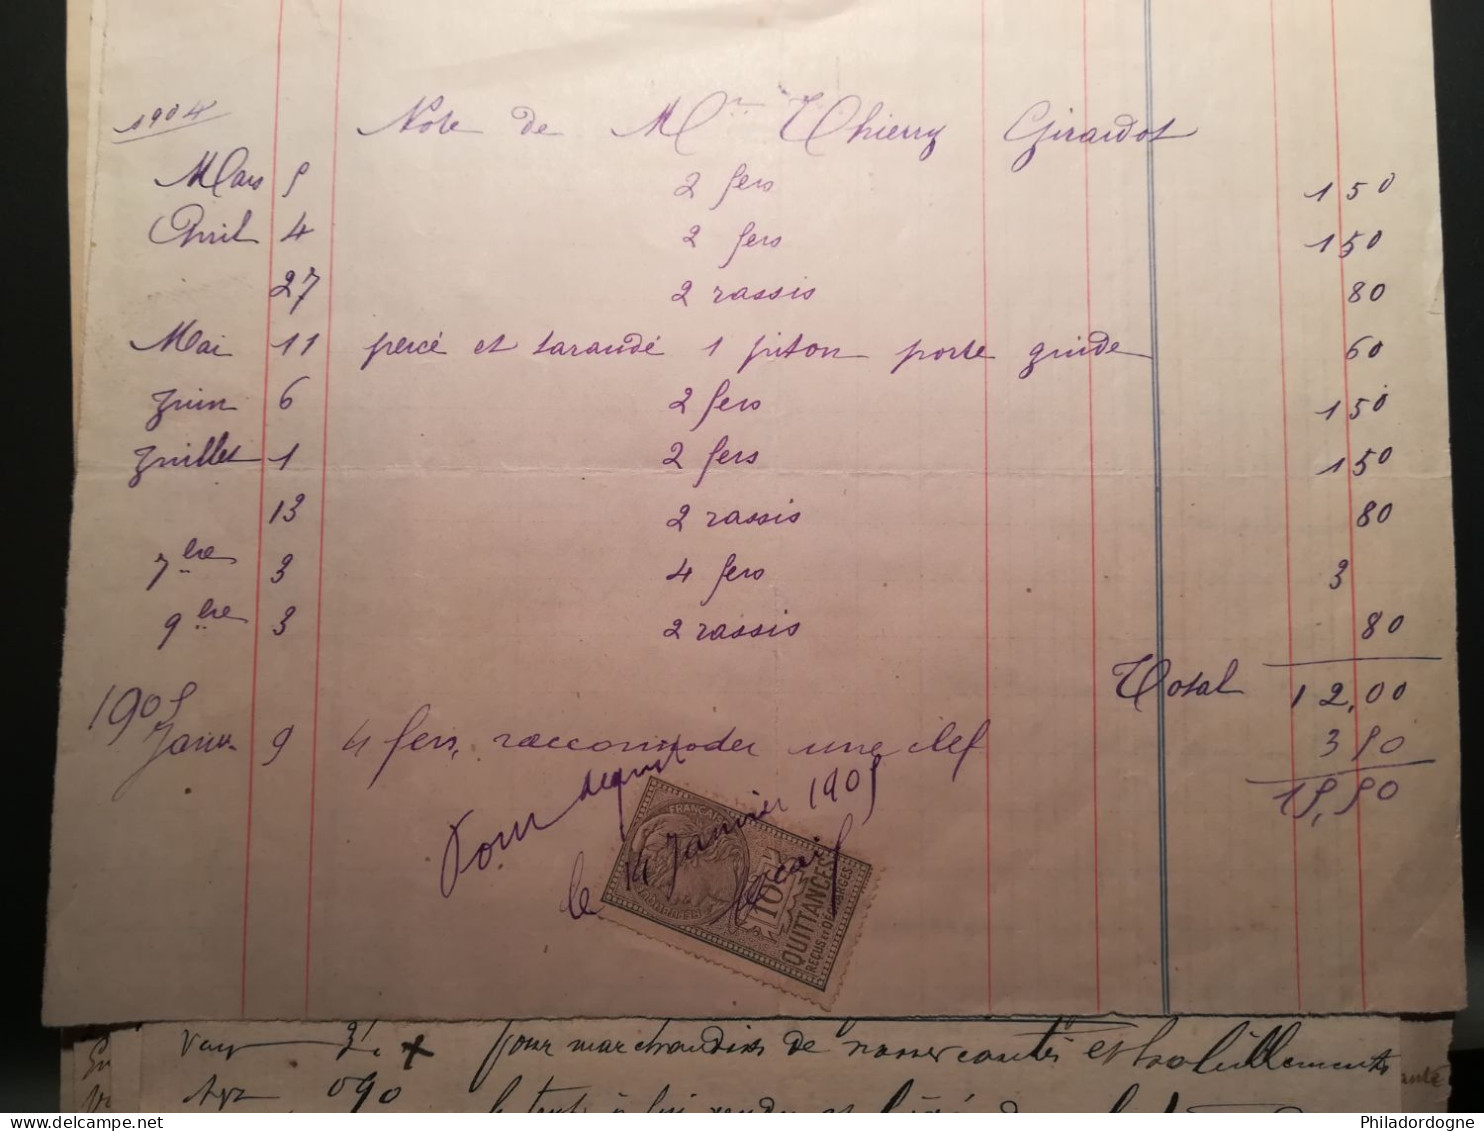 1904 Note de Mr Thierry Girardot
Mars 5 2 fers 1 50
Avril 4 2 fers 1 50
27 2 rassis 80
Mai 11 percé et taraudé 1 piton porte guide 60
Juin 6 2 fers 1 50
Juillet 1 2 fers 1 50
13 2 rassis 80
7bre 3 4 fers 3
9bre 3 2 rassis 80
Total 12,00
1905
Janv 9 4 fers, raccommoder une clef 3 50
15,50
Pour acquit
le 14 Janvier 1905
FRANÇAISE
10c
QUITTANCES
REÇUS ET DÉCHARGES
pour marchandises de
090
Philadordogne